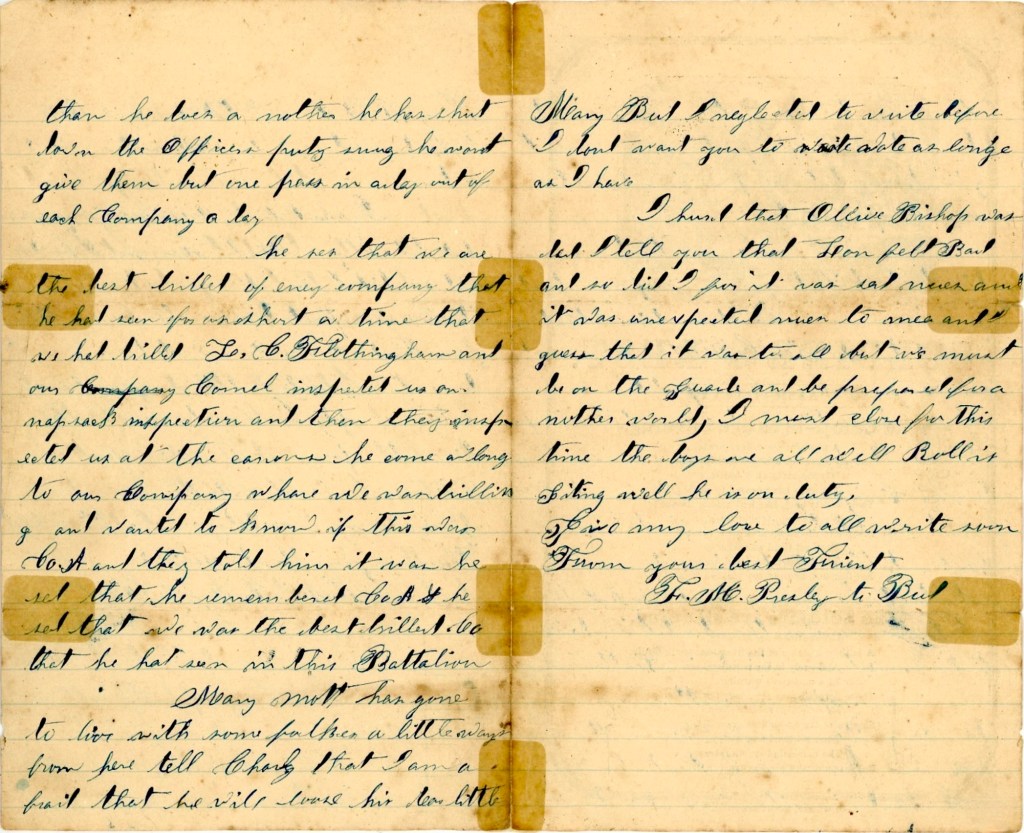 than he does a nother he has shut
down the Officers puty snug he wont
give them but one pass in a day out of
each Company a day
he ses that we are
the best drilled of eney company that
he had seen for as short a time that
we had drilled L. C. Frothingham and
our Company Cornel inspected us on
napsack inspection and then they insp
ected us at the canons he come along
to our Company whare we was drillin
g and wanted to know if this was
Co. A and they told him it was he
sed that he remembered Co A & he
sed that we was the best drilled Co
that he had seen in this Battalion
Mary Mott has gone
to live with some folkes a little ways
from here tell Charly that I am a
fraid that he will loose his dear little
Mary But I neglected to write before
I dont want you to wate as longe
as I have
I hurd that Ollive Bishop was
ded I tell you that Hon felt Bad
and so did I for it was sad nues and
it was unexpected nues to me and I
guess that it was to all but we must
be on the Guarde and be prepared for a
nother world, I must close for this
time the boys are all well Roll is
giting well he is on duty,
Give my love to all write soon
From your best Friend
F. M. Presley to Bert